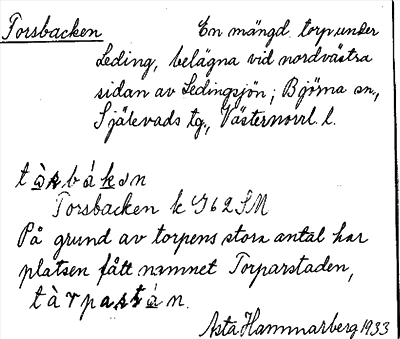 Torsbacken En mängd torp under
Leding, belägna vid nordvästra
sidan av Ledingsjön; Björna sn.,
Själevads tg., Västernorrl. l.
tàsbákən
Torsbacken k
På grund av torpens stora antal har
platsen fått namnet Torparstaden,
tàrpastán.
Asta Hammarberg 1933